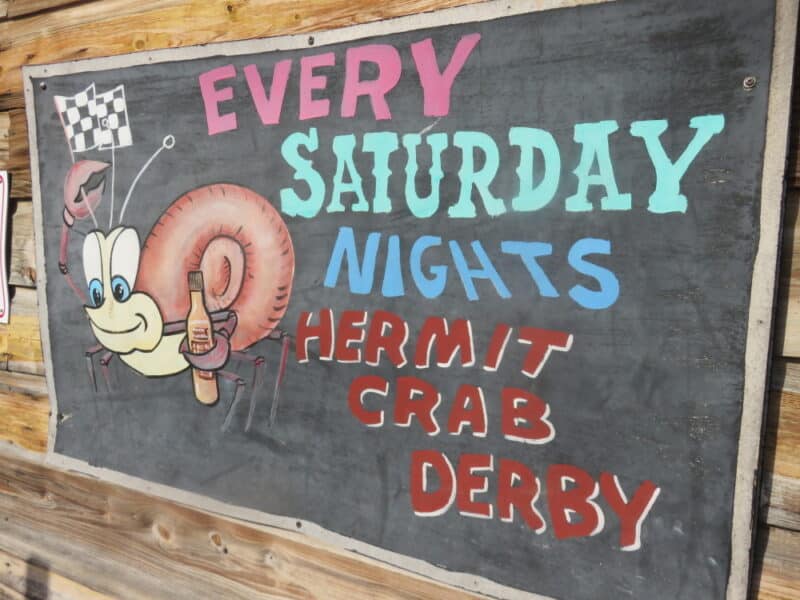 EVERY
SATURDAY
NIGHTS
HERMIT
CRAB
DERBY